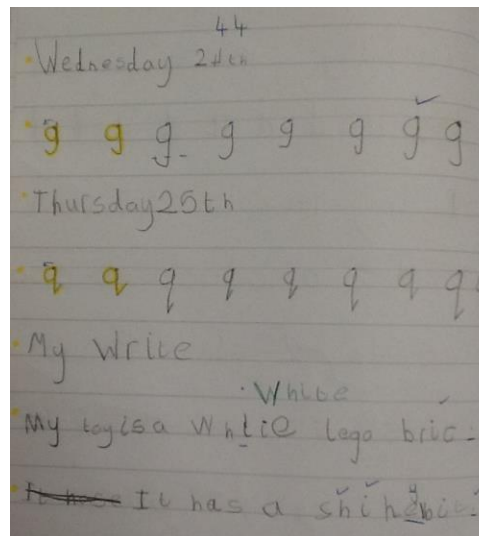 44
Wednesday 24th
g g g g g g g g
Thursday 25th
q q q q q q q q
My Write
White
My toy is a Whtie lego bric.
It has a